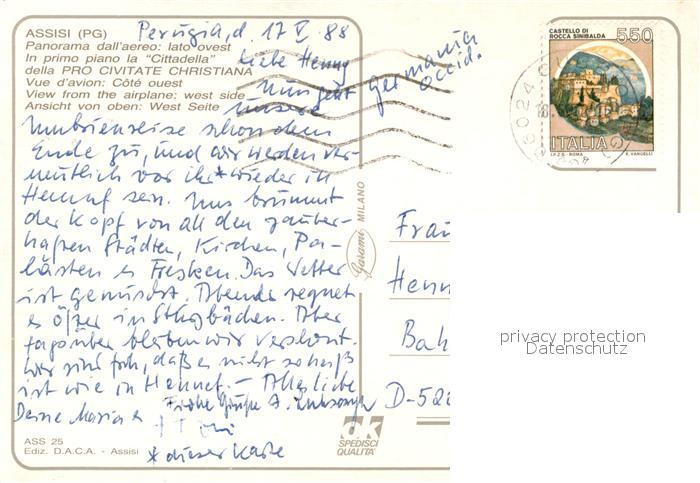 Perugia, d. 17 V. 88
ASSISI (PG)
Panorama dall'aereo: lato ovest
In primo piano la "Cittadella"
della PRO CIVITATE CHRISTIANA
Vue d'avion: Côté ouest
View from the airplane: west side
Ansicht von oben: West Seite
Liebe Henny
Nun geht
unsere
Umbrienreise schon dem
Ende zu, und wir werden ver-
mutlich vor ihr* wieder in
Hennef sein. Uns brummt
der Kopf von all den zauber-
haften Städten, Kirchen, Pa-
lästen u Fresken. Das Wetter
ist gemischt. Abends regnet
es öfter in Sturzbächen. Aber
tagsüber bleiben wir verschont.
Wir sind froh, daß es nicht so heiß
ist wie in Hennef. – Alles Liebe
Deine Maria
Frohe Grüße
* dieser Karte
ASS 25
Ediz. D.A.C.A. - Assisi
Garami MILANO
SPEDISCI
QUALITA'
germania
occid.
CASTELLO DI
ROCCA SINIBALDA
550
ITALIA
I.P.Z.S. - ROMA E. VANGELLI
06024
Frau
Henn
Bah
D-520
privacy protection
Datenschutz